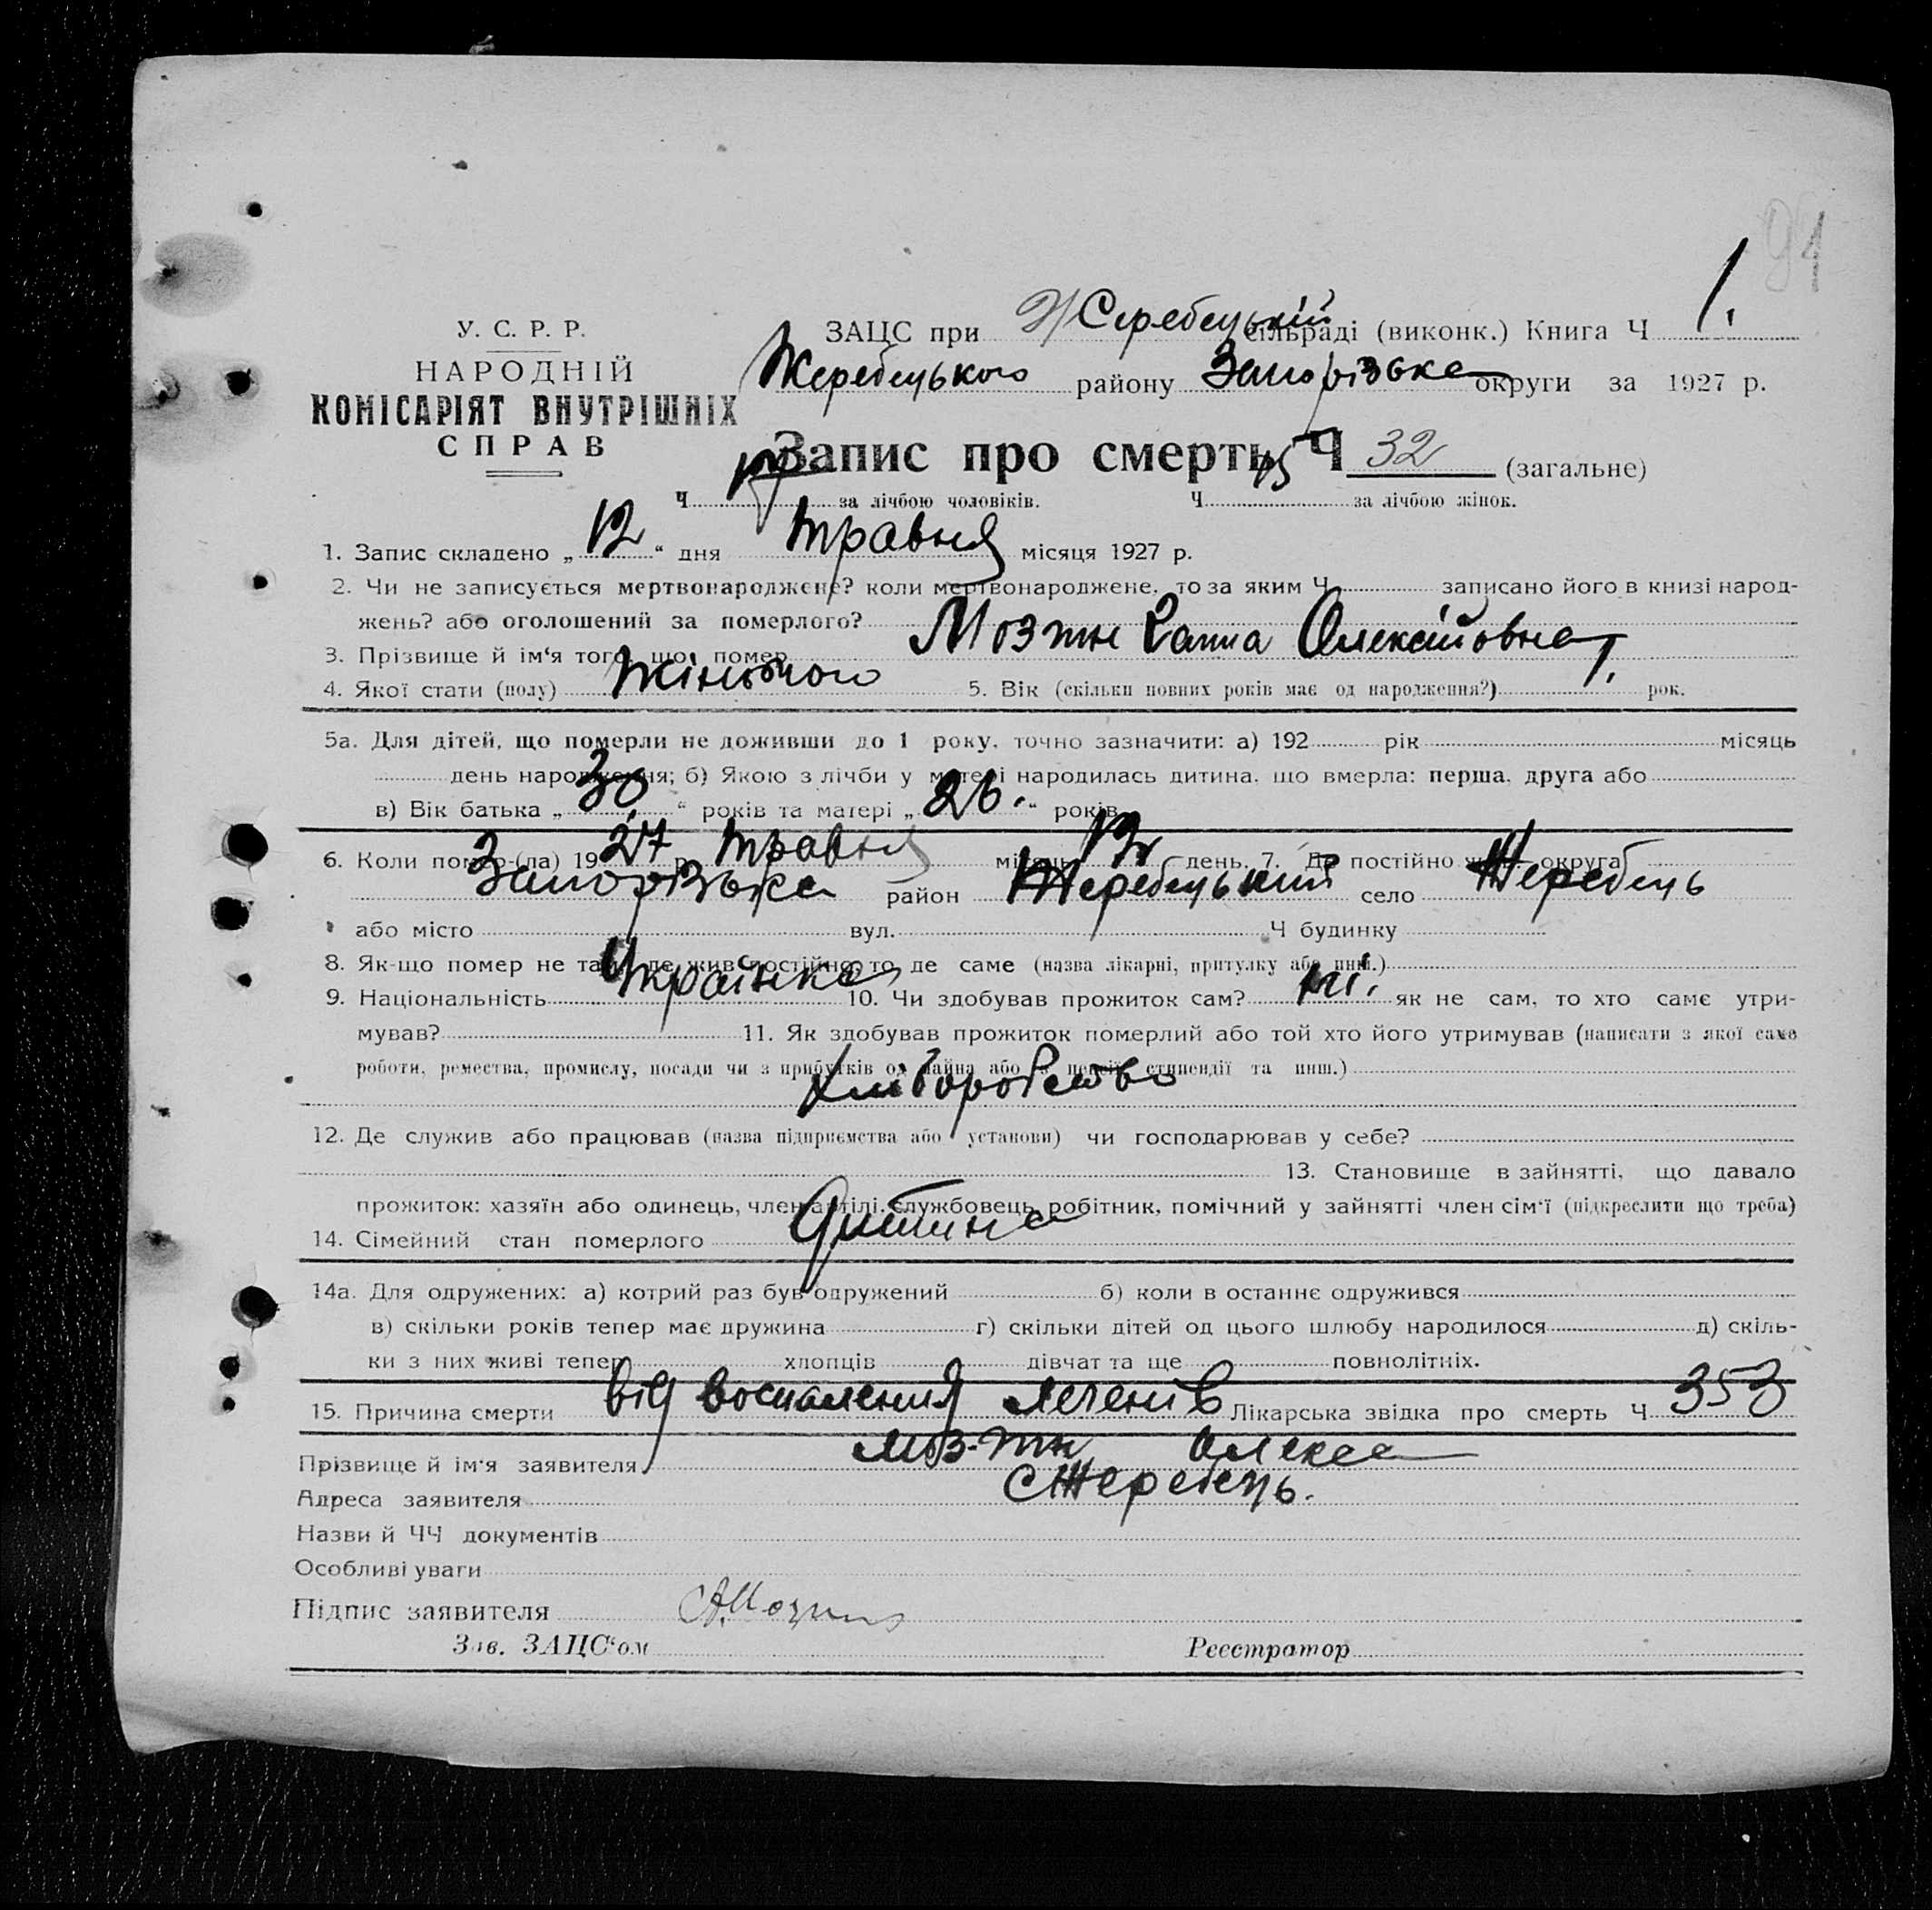 91
У. С. Р. Р.
НАРОДНІЙ
КОМІСАРІЯТ ВНУТРІШНІХ
СПРАВ
ЗАЦС при Жеребецькій сільраді (виконк.) Книга Ч 1.
Жеребецького району Запорізька округи за 1927 р.
Запис про смерть Ч 32 (загальне)
Ч 17 за лічбою чоловіків. Ч 15 за лічбою жінок.
1. Запис складено „ 12 “ дня травня місяця 1927 р.
2. Чи не записується мертвонароджене? коли мертвонароджене, то за яким Ч записано його в книзі народ-
жень? або оголошений за померлого?
3. Прізвище й ім‘я того, що помер Олексійовна
4. Якої стати (полу) Жіночого 5. Вік (скільки повних років має од народження?) 1. рок.
5а. Для дітей, що померли не доживши до 1 року, точно зазначити: а) 192 рік місяць
день народження; б) Якою з лічби у матері народилась дитина, що вмерла: перша, друга або
в) Вік батька „ 30 “ років та матері „ 26. “ років
6. Коли помер-(ла) 1927 р. травня місяць 12 день. 7. Де постійно жив округа
Запорізька район Жеребецький село Жеребець
або місто вул. Ч будинку
8. Як-що помер не там, де жив постійно, то де саме (назва лікарні, притулку або инш.)
9. Національність Українка 10. Чи здобував прожиток сам? ні. як не сам, то хто саме утри-
мував? 11. Як здобував прожиток померлий або той хто його утримував (написати з якої саме
роботи, ремества, промислу, посади чи з прибутків од майна або з пенсії, стипендії та инш.)
Хліборобство
12. Де служив або працював (назва підприємства або установи) чи господарював у себе?
13. Становище в зайнятті, що давало
прожиток: хазяїн або одинець, член артілі, службовець, робітник, помічний у зайнятті член сім‘ї (підкреслити що треба)
14. Сімейний стан померлого Дитина
14а. Для одружених: а) котрий раз був одружений б) коли в останнє одружився
в) скільки років тепер має дружина г) скільки дітей од цього шлюбу народилося д) скіль-
ки з них живі тепер хлопців дівчат та ще повнолітніх.
15. Причина смерти від воспаления легенів Лікарська звідка про смерть Ч 353
Прізвище й ім‘я заявителя Олекса
Адреса заявителя с Жеребець.
Назви й ЧЧ документів
Особливі уваги
Підпис заявителя
Зав. ЗАЦС‘ом Реєстратор